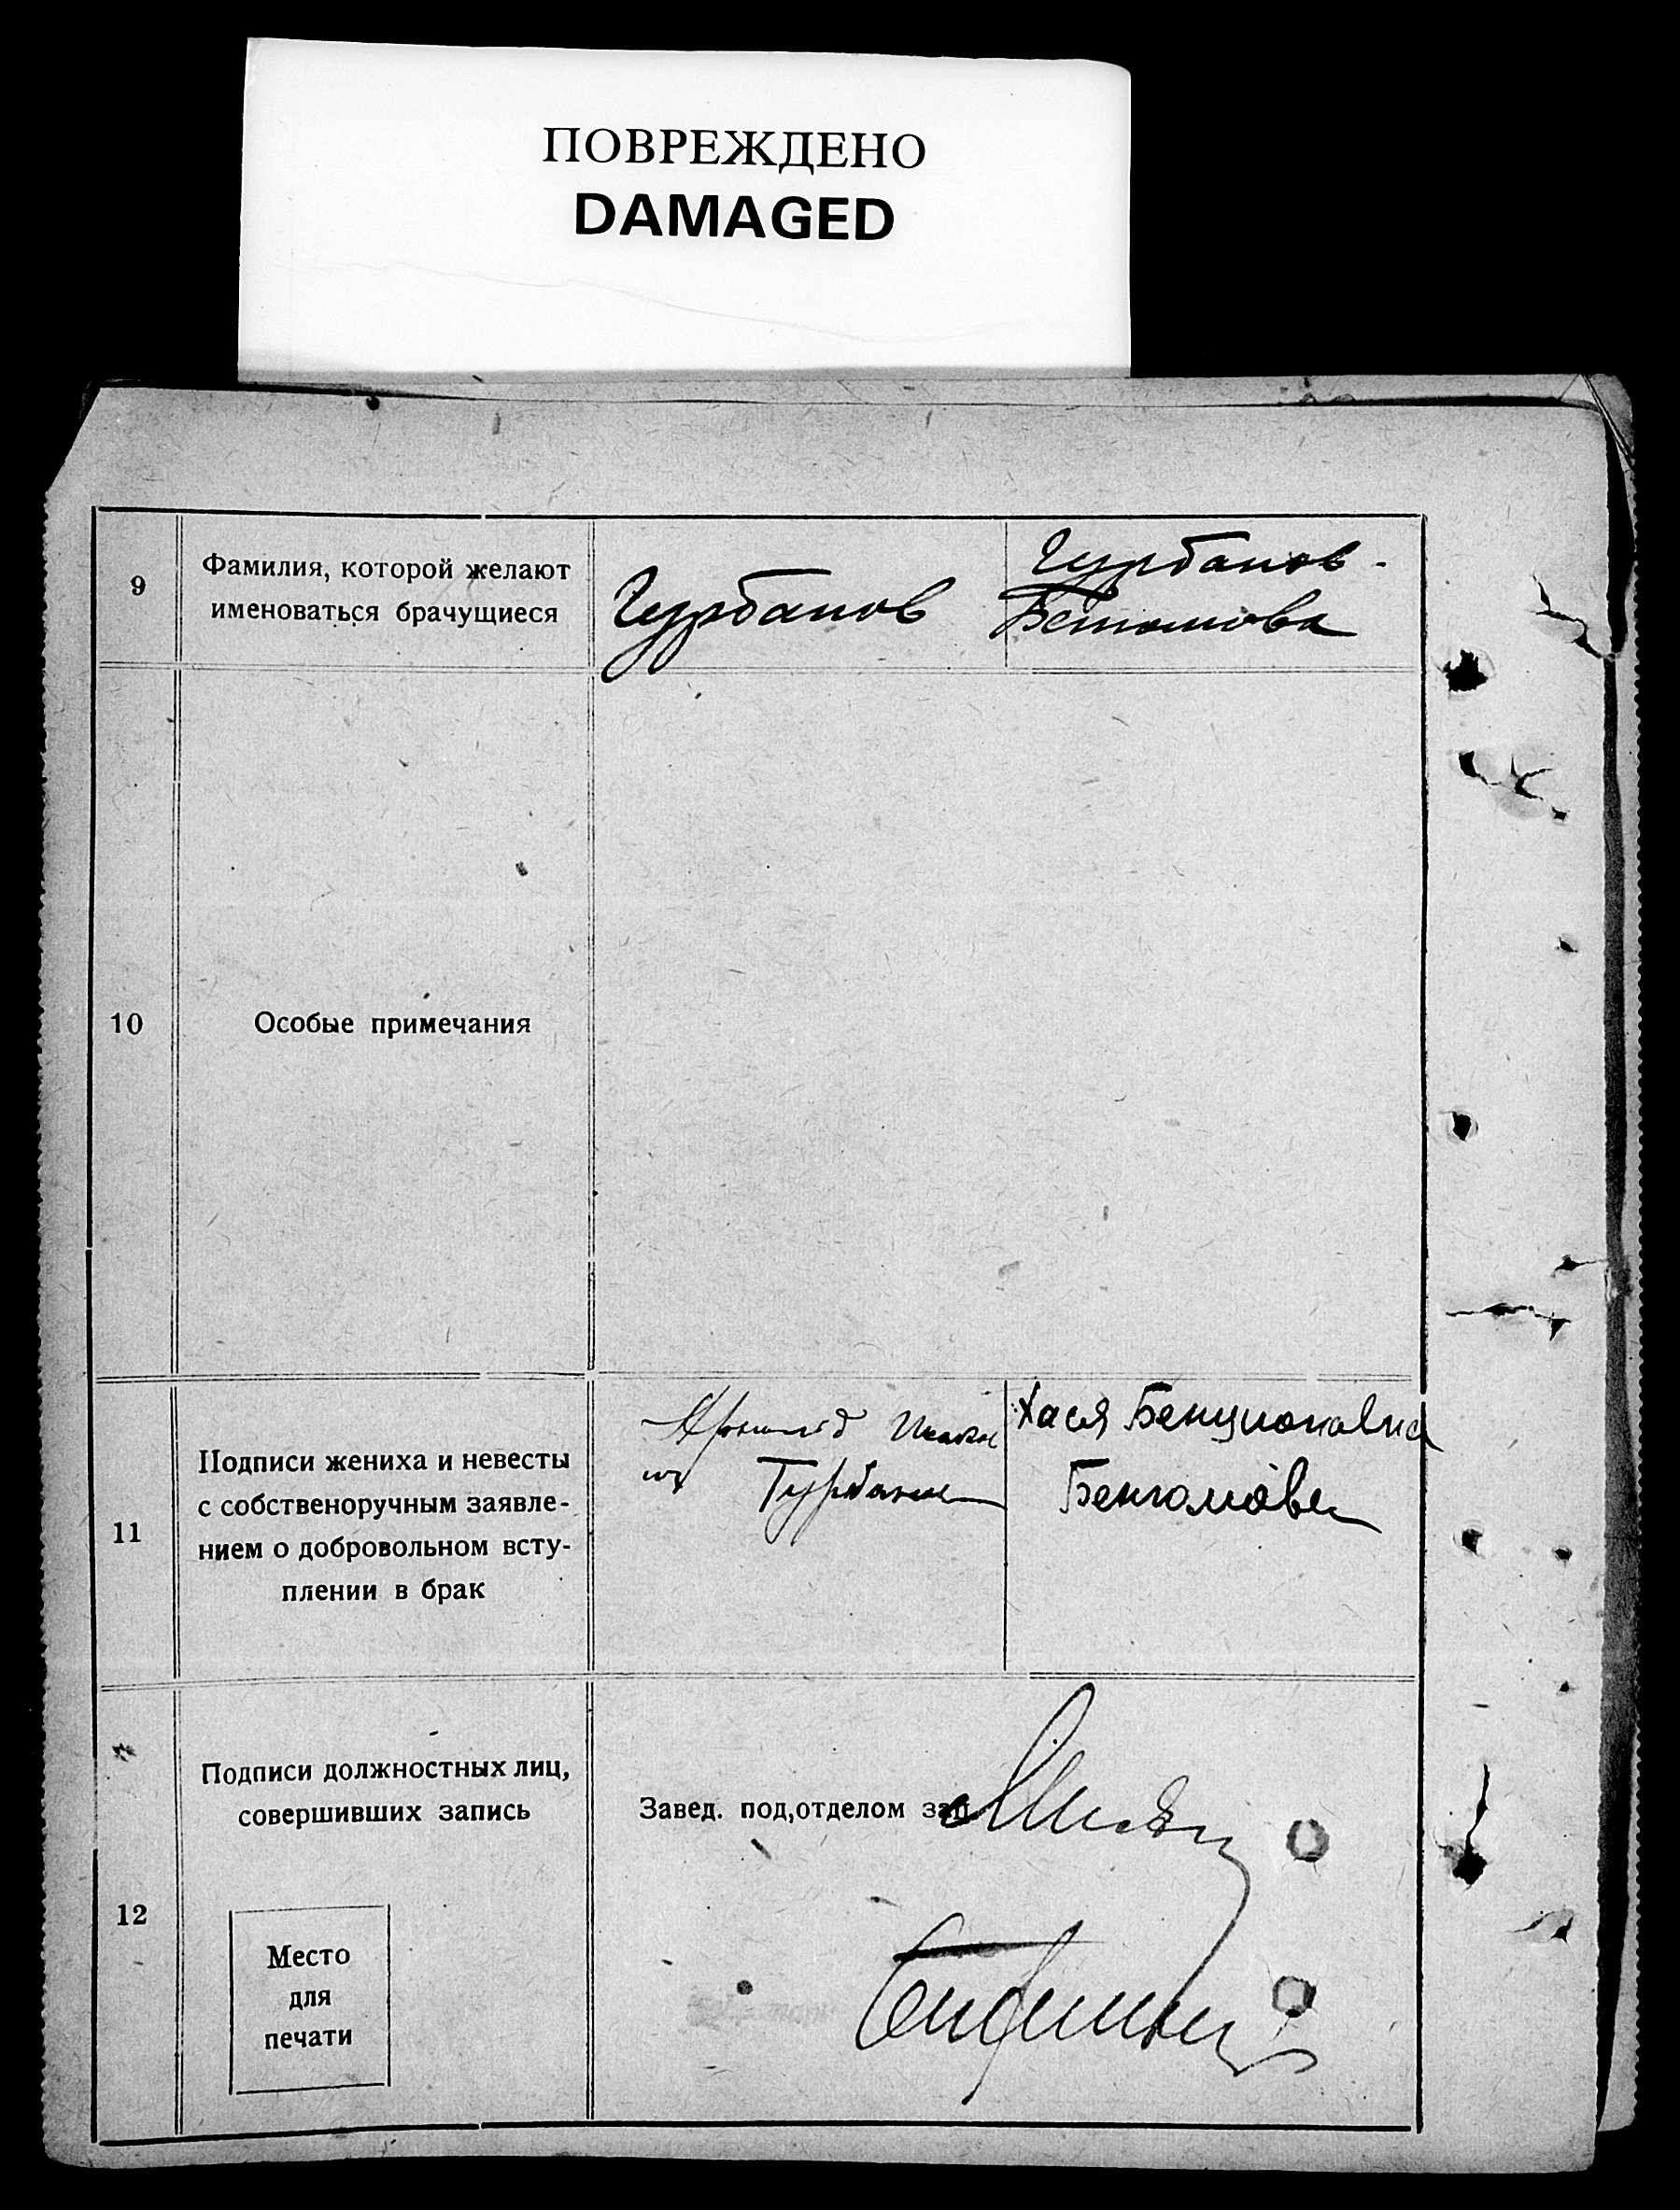 ПОВРЕЖДЕНО
DAMAGED
9
Фамилия, которой желают
именоваться брачущиеся
Гурбанов
Гурбанов-
10
Особые примечания
11
Подписи жениха и невесты
с собственоручным заявле-
нием о добровольном всту-
плении в брак
Хася Бенционовна
12
Подписи должностных лиц,
совершивших запись
Завед. под,отделом зап.
Место
для
печати